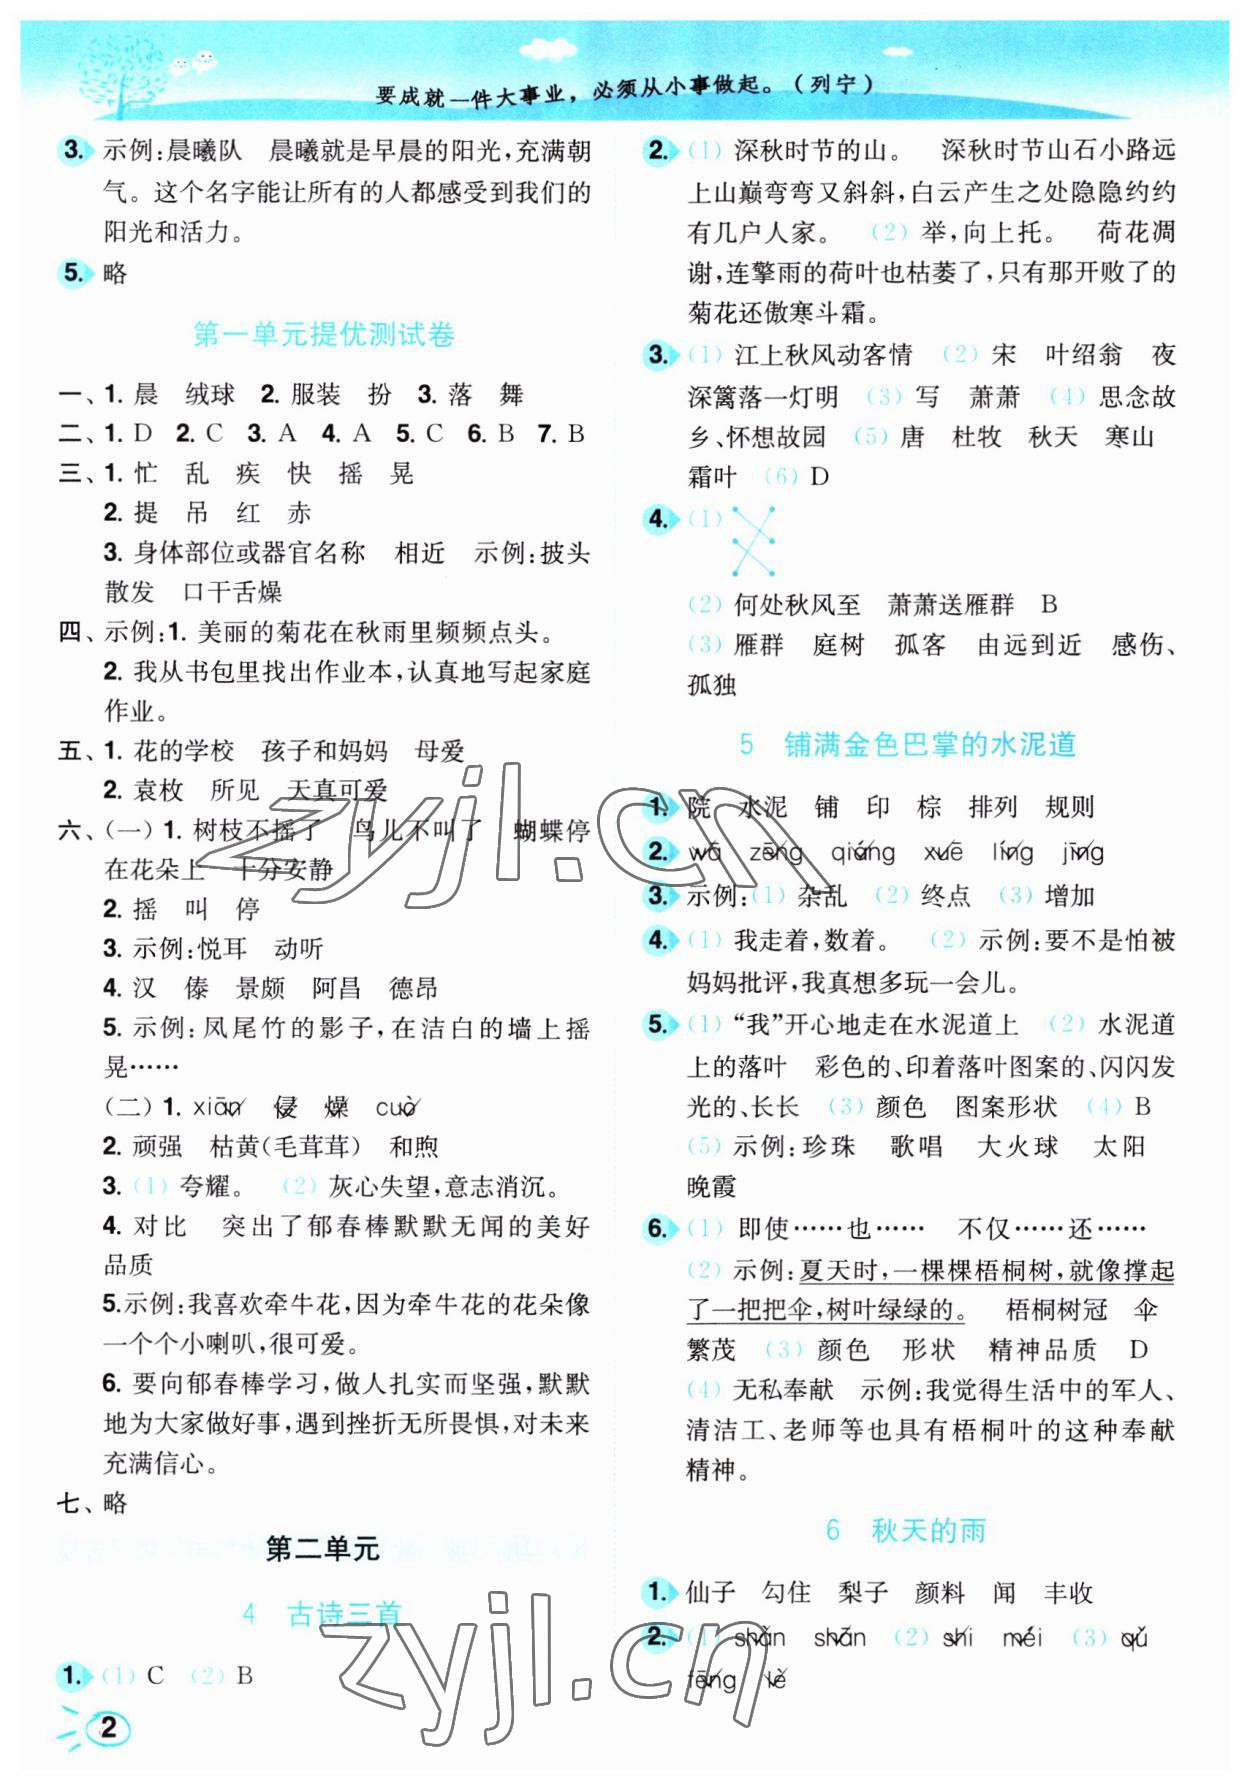 要成就一件大事业，必须从小事做起。（列宁）
3. 示例：晨曦队　晨曦就是早晨的阳光，充满朝
气。这个名字能让所有的人都感受到我们的
阳光和活力。
5. 略
第一单元提优测试卷
一、1. 晨　绒球　2. 服装　扮　3. 落　舞
二、1. D　2. C　3. A　4. A　5. C　6. B　7. B
三、1. 忙　乱　疾　快　摇　晃
2. 提　吊　红　赤
3. 身体部位或器官名称　相近　示例：披头
散发　口干舌燥
四、示例：1. 美丽的菊花在秋雨里频频点头。
2. 我从书包里找出作业本，认真地写起家庭
作业。
五、1. 花的学校　孩子和妈妈　母爱
2. 袁枚　所见　天真可爱
六、（一）1. 树枝不摇了　鸟儿不叫了　蝴蝶停
在花朵上　十分安静
2. 摇　叫　停
3. 示例：悦耳　动听
4. 汉　傣　景颇　阿昌　德昂
5. 示例：凤尾竹的影子，在洁白的墙上摇
晃……
（二）1. xiān　侵　燥　cuò
2. 顽强　枯黄（毛茸茸）　和煦
3.（1）夸耀。　（2）灰心失望，意志消沉。
4. 对比　突出了郁春棒默默无闻的美好
品质
5.示例：我喜欢牵牛花，因为牵牛花的花朵像
一个个小喇叭，很可爱。
6. 要向郁春棒学习，做人扎实而坚强，默默
地为大家做好事，遇到挫折无所畏惧，对未来
充满信心。
七、略
第二单元
4　古诗三首
1.（1）C　（2）B
2
2.（1）深秋时节的山。　深秋时节山石小路远
上山巅弯弯又斜斜，白云产生之处隐隐约约
有几户人家。　（2）举，向上托。　荷花凋
谢，连擎雨的荷叶也枯萎了，只有那开败了的
菊花还傲寒斗霜。
3.（1）江上秋风动客情　（2）宋　叶绍翁　夜
深篱落一灯明　（3）写　萧萧　（4）思念故
乡、怀想故园　（5）唐　杜牧　秋天　寒山
霜叶　（6）D
4.（1）
（2）何处秋风至　萧萧送雁群　B
（3）雁群　庭树　孤客　由远到近　感伤、
孤独
5　铺满金色巴掌的水泥道
1. 院　水泥　铺　印　棕　排列　规则
2. wā　zēng　qiáng　xuē　líng　jīng
3. 示例：（1）杂乱　（2）终点　（3）增加
4.（1）我走着，数着。　（2）示例：要不是怕被
妈妈批评，我真想多玩一会儿。
5.（1）“我”开心地走在水泥道上　（2）水泥道
上的落叶　彩色的、印着落叶图案的、闪闪发
光的、长长　（3）颜色　图案形状　（4）B
（5）示例：珍珠　歌唱　大火球　太阳
晚霞
6.（1）即使……也……　不仅……还……
（2）示例：夏天时，一棵棵梧桐树，就像撑起
了一把把伞，树叶绿绿的。　梧桐树冠　伞
繁茂　（3）颜色　形状　精神品质　D
（4）无私奉献　示例：我觉得生活中的军人、
清洁工、老师等也具有梧桐叶的这种奉献
精神。
6　秋天的雨
1. 仙子　勾住　梨子　颜料　闻　丰收
2.（1）shǎn　shān　（2）shi　méi　（3）qǔ
fēng　lè
zyjl.cn
zyjl.cn